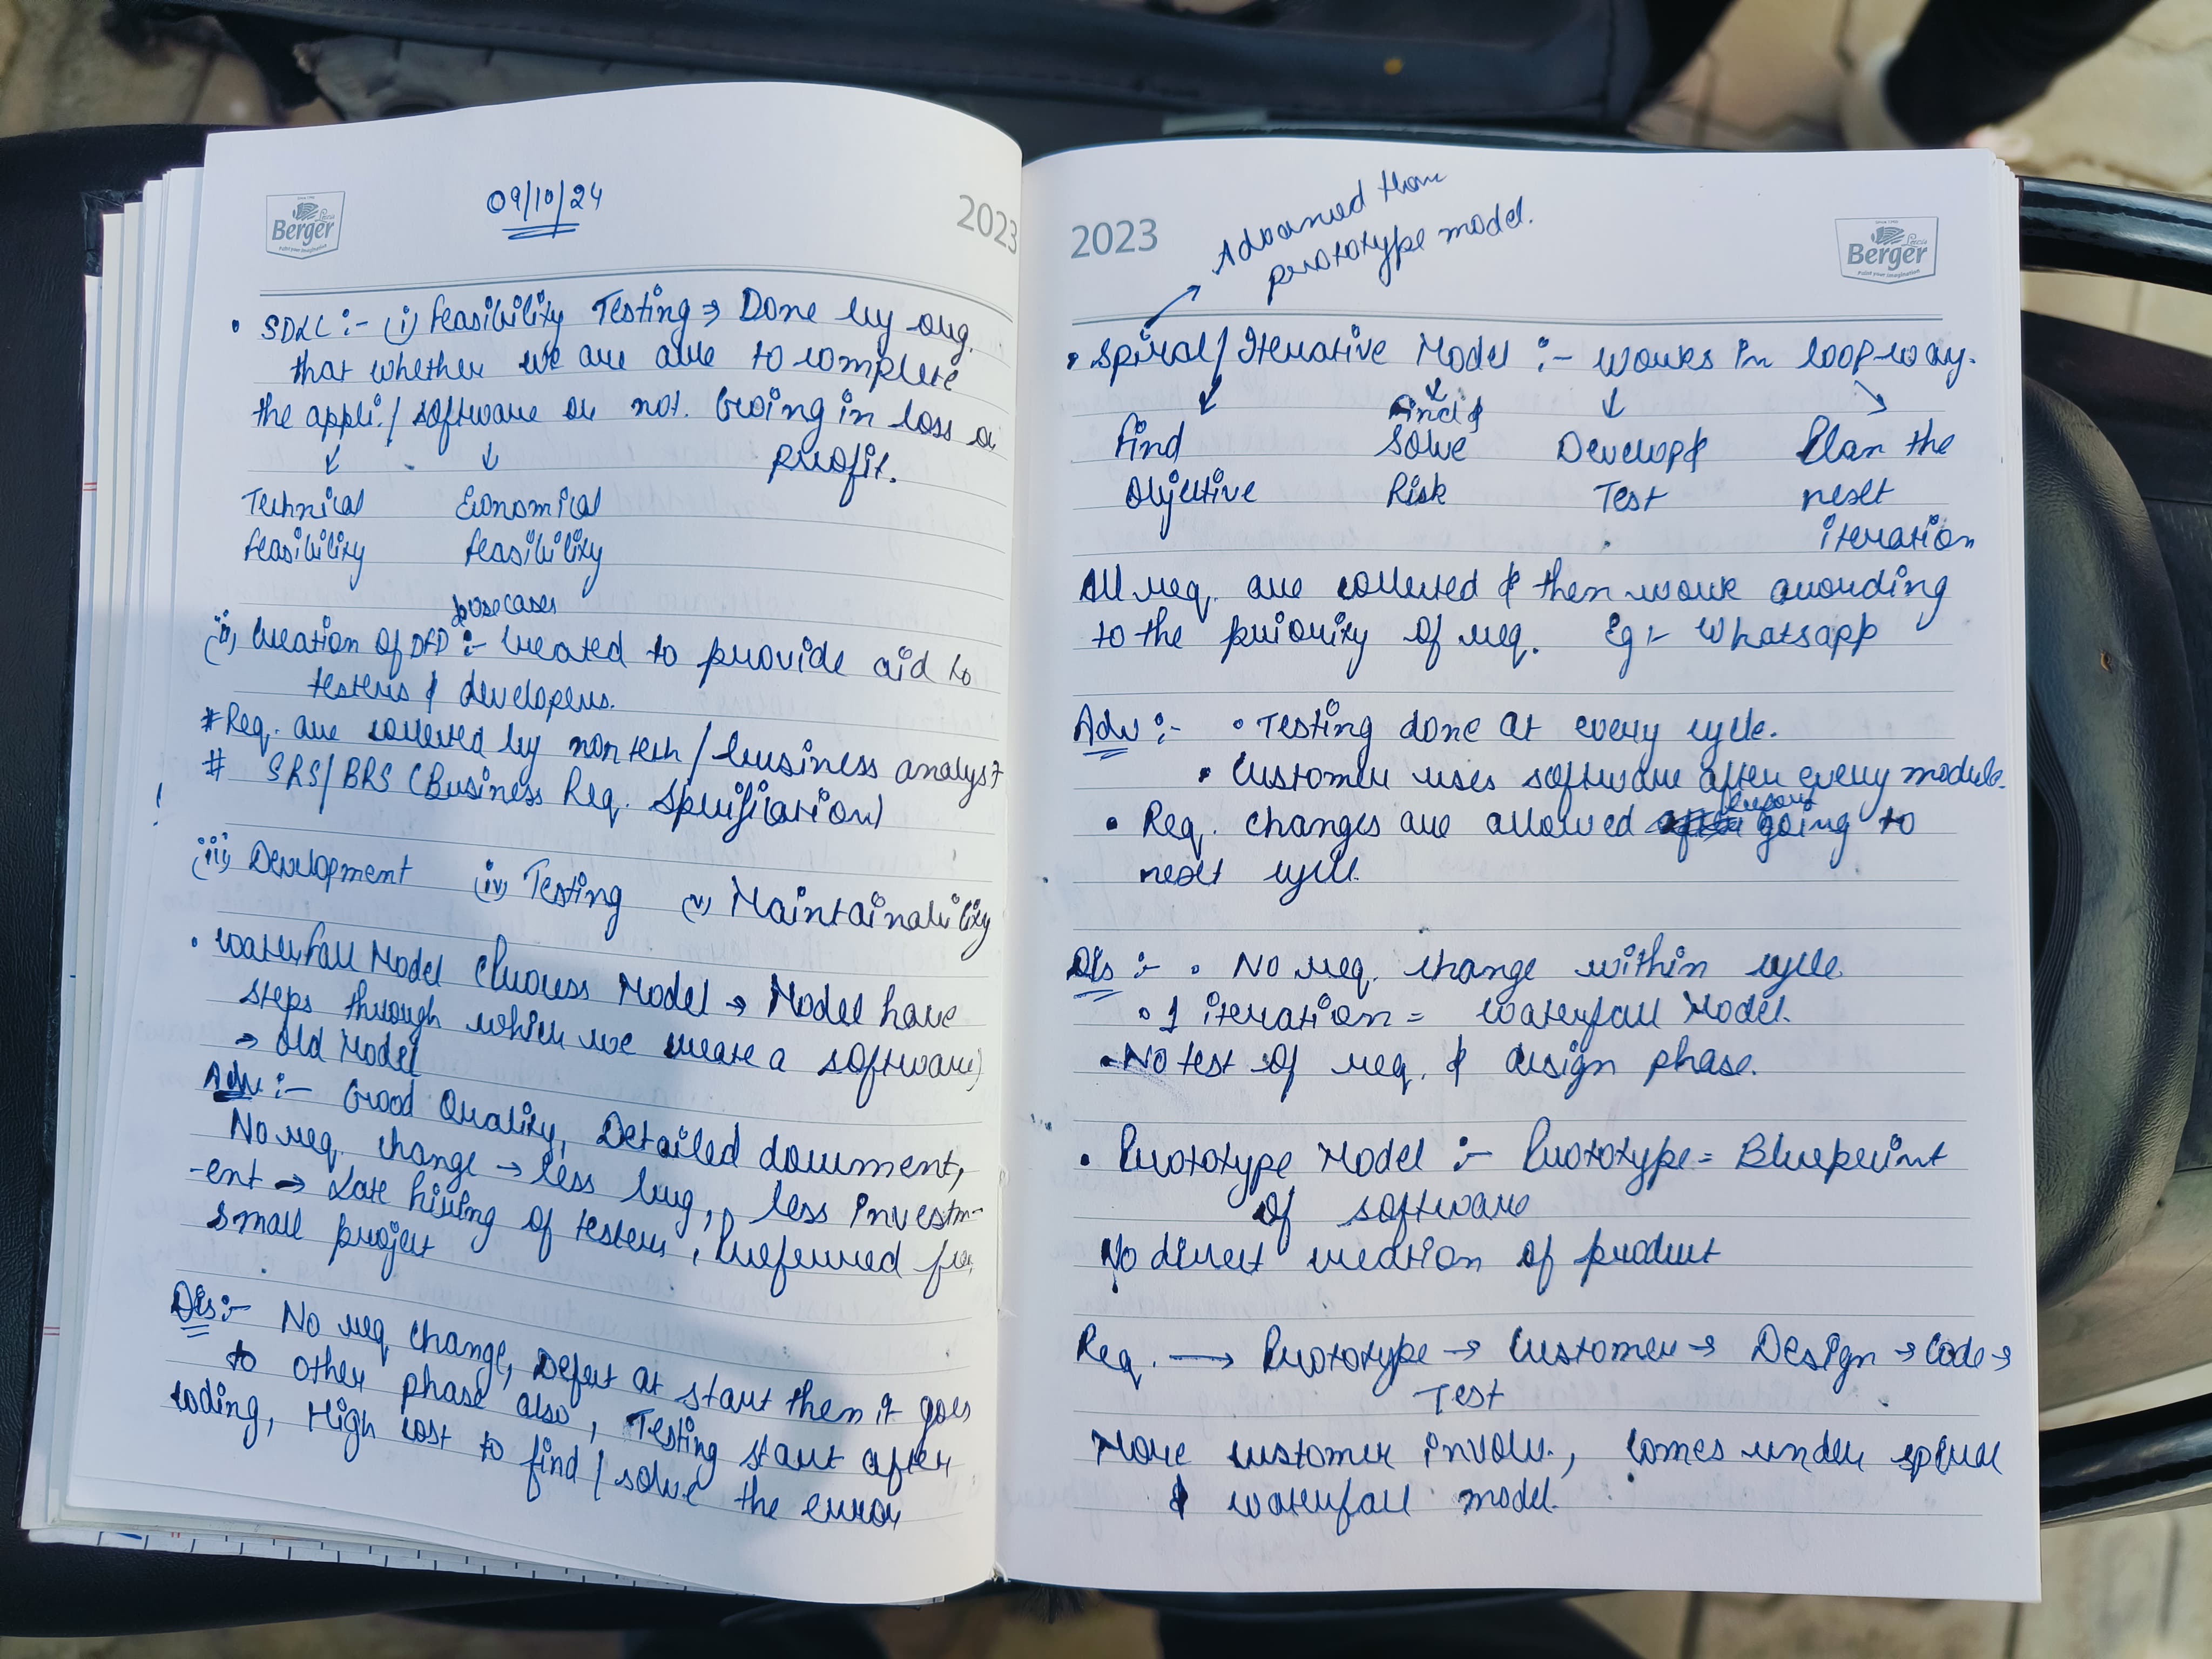 Since 1790
Lewis
Berger
Paint your imagination
09/10/24
2023
• SDLC :- (i) Feasibility Testing → Done by org.
that whether we are able to complete
the appli. / software or not. Going in loss or
profit.
Technical Economical
feasibility feasibility
usecases
(ii) Creation of DFD :- Created to provide aid to
testers & developers.
# Req. are collected by non tech / business analyst
# SRS/BRS (Business Req. Specification)
(iii) Development (iv) Testing (v) Maintainability
• Waterfall Model (Process Model → Model have
steps through which we create a software)
→ Old Model
Adv :- Good Quality, Detailed document,
No req. change → less bug, less investm-
-ent → Late hiring of testers, Preferred for
small project
Dis :- No req change, Defect at start then it goes
to other phase also, Testing start after
coding, High cost to find / solve the error
2023
Advanced than
prototype model.
Berger
Paint your imagination
• Spiral / Iterative Model :- Works in loop-way.
Find Find & Develop & Plan the
Objective Solve Test next
Risk iteration
All req. are collected & then work according
to the priority of req. Eg :- Whatsapp
Adv :- • Testing done at every cycle.
• Customer uses software after every module.
• Req. changes are allowed before going to
next cycle.
Dis :- • No req. change within cycle
• 1 iteration = Waterfall Model.
• No test of req. & design phase.
• Prototype Model :- Prototype = Blueprint
of software
No direct creation of product
Req. → Prototype → Customer → Design → Code →
Test
More customer involv., Comes under spiral
& waterfall model.